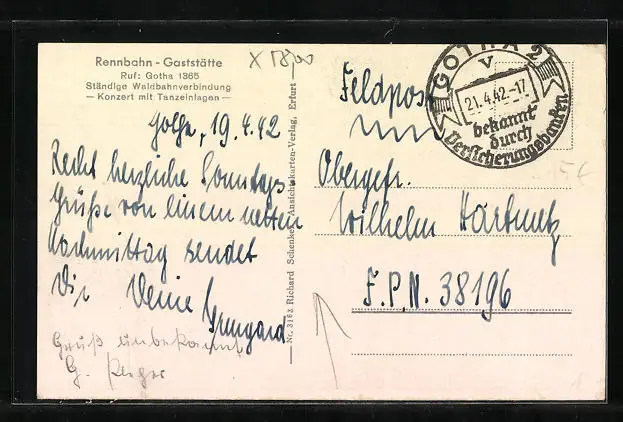 Rennbahn - Gaststätte
Ruf: Gotha 1365
Ständige Waldbahnverbindung
— Konzert mit Tanzeinlagen —
Gotha, 19.4.42
Recht herzliche Sonntags-
Grüße von einem netten
Nachmittag sendet
Dir Deine Irmgard
Gruß unbekannt
G.
Nr. 3163 Richard Schenker, Ansichtskarten-Verlag, Erfurt
Feldpost
GOTHA 2
V
21.4.42.-17
bekannt
durch
Versicherungsbanken
15 €
Obergefr.
Wilhelm Hartmetz
F.P.N. 38196